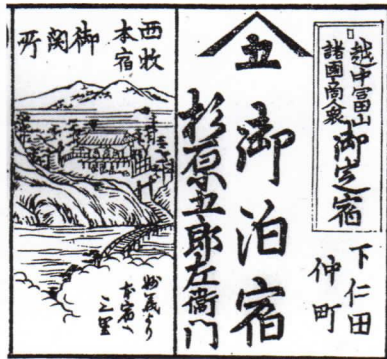 越中富山
諸國商人衆
御定宿
下仁田
仲町
五
御泊宿
杉原五郎左衛門
西牧
本宿
御関
所
妙義より
本宿へ
三里